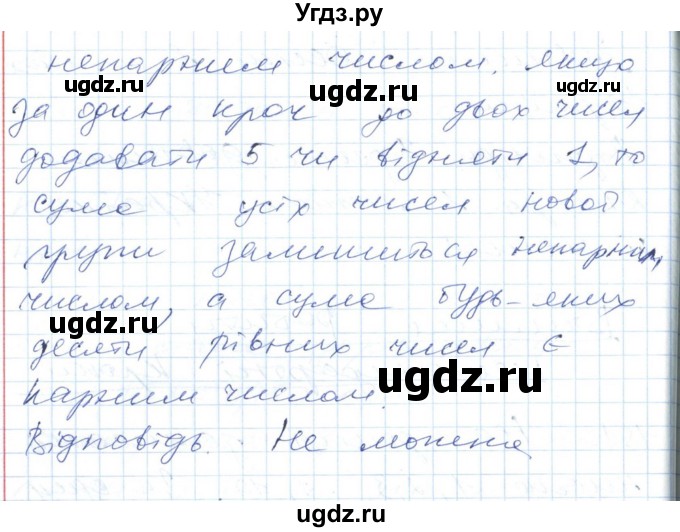 Угдз.ру
непарним числом. Якщо
за один крок до двох чисел
додавати 5 чи відняти 1, то
сума усіх чисел нової
групи залишиться непарним
числом, а сума будь-яких
десяти рівних чисел є
парним числом.
Відповідь. Не можна
ugdz.ru
ugdz.ru
ugdz.ru
ugdz.ru
ugdz.ru
ugdz.ru
ugdz.ru
ugdz.ru